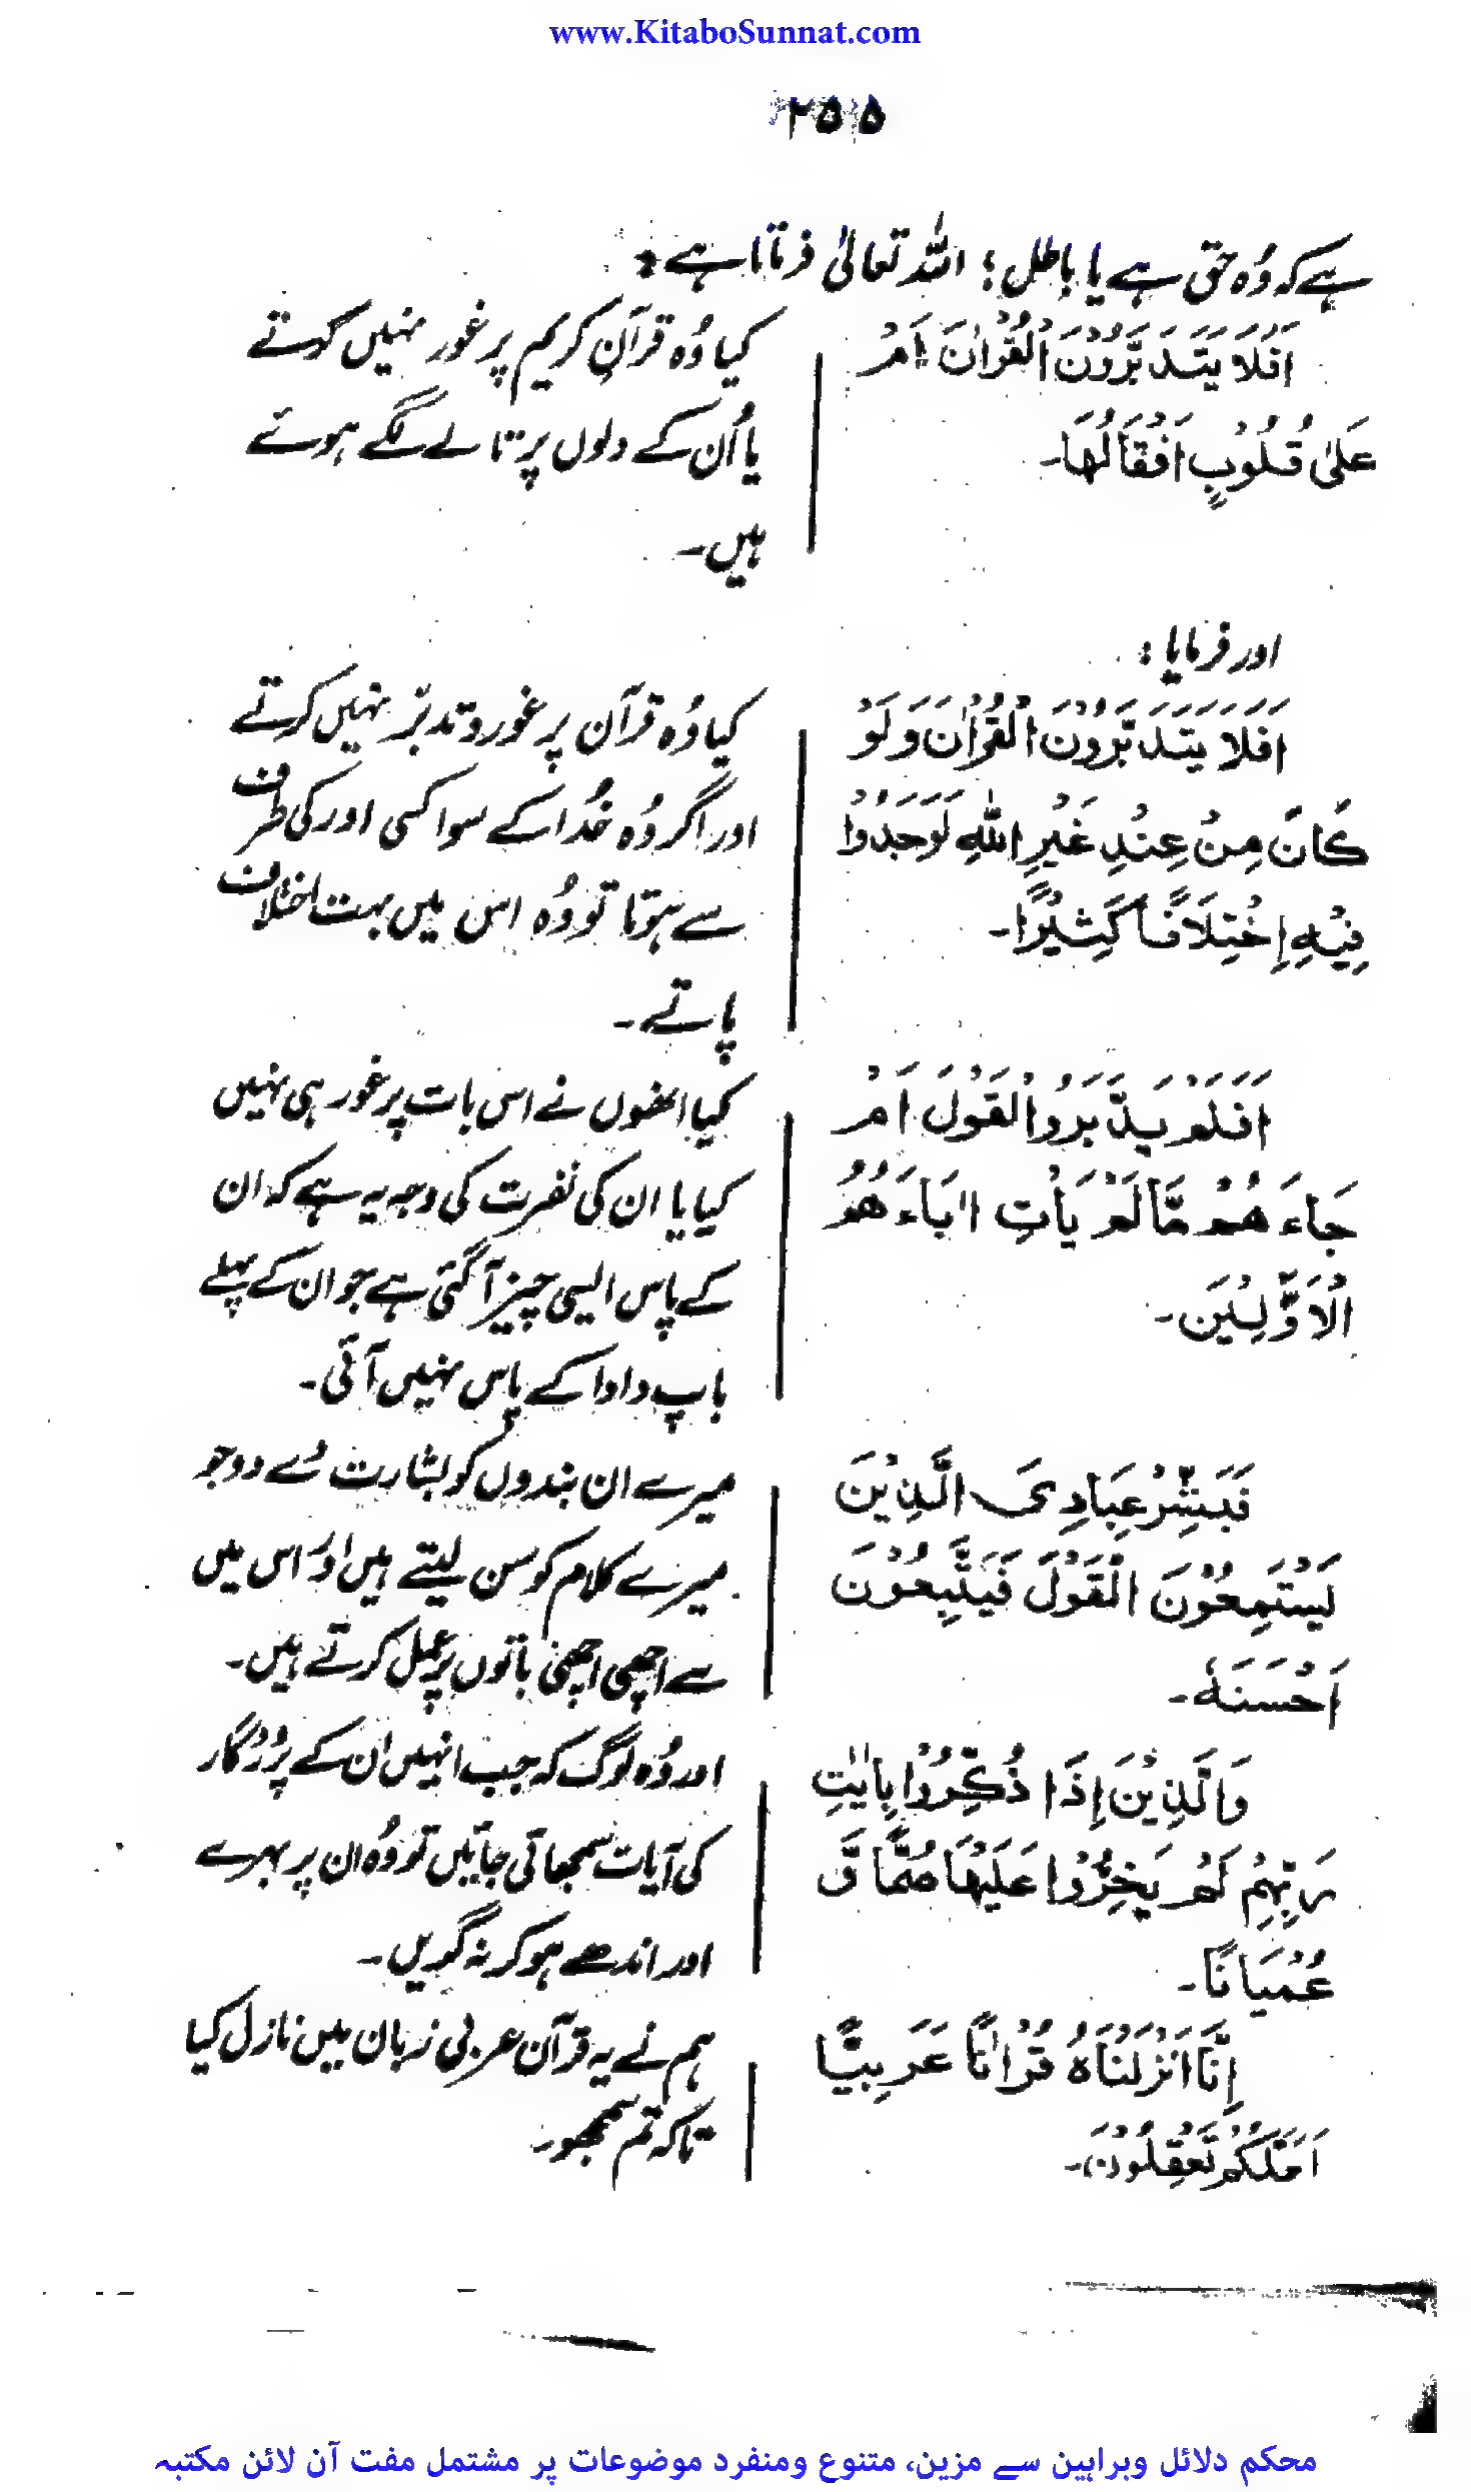 www.KitaboSunnat.com
۲۵۵
ہے کہ وُہ حق ہے یا باطل؛ اللہ تعالیٰ فرتاتا ہے:
اَفَلَا يَتَدَبَّرُوْنَ الْقُرْاٰنَ اَمْ
عَلٰى قُلُوْبٍ اَقْفَالُهَا۔
کیا وُہ قرآنِ کریم پر غور نہیں کرتے
یا اُن کے دلوں پر تالے لگے ہوئے
ہیں۔
اور فرمایا:
اَفَلَا يَتَدَبَّرُوْنَ الْقُرْاٰنَ وَلَوْ
كَانَ مِنْ عِنْدِ غَيْرِ اللّٰهِ لَوَجَدُوْا
فِيْهِ اِخْتِلَافًا كَثِيْرًا۔
کیا وُہ قرآن پر غور و تدبّر نہیں کرتے
اور اگر وُہ خُدا کے سوا کسی اور کی طرف
سے ہوتا تو وُہ اس میں بہت اختلاف
پاتے۔
اَفَلَمْ يَدَّبَّرُوا الْقَوْلَ اَمْ
جَاءَهُمْ مَّا لَمْ يَأْتِ اٰبَاءَهُمُ
الْاَوَّلِيْنَ۔
کیا انھوں نے اس بات پر غور ہی نہیں
کیا یا ان کی نفرت کی وجہ یہ ہے کہ ان
کے پاس ایسی چیز آ گئی ہے جو ان کے پہلے
باپ دادا کے پاس نہیں آئی۔
فَبَشِّرْ عِبَادِىَ الَّذِيْنَ
يَسْتَمِعُوْنَ الْقَوْلَ فَيَتَّبِعُوْنَ
اَحْسَنَهٗ۔
میرے ان بندوں کو بشارت دے دو جو
میرے کلام کو سن لیتے ہیں اور اس میں
سے اچھی اچھی باتوں پر عمل کرتے ہیں۔
وَالَّذِيْنَ اِذَا ذُكِّرُوْا بِاٰيٰتِ
رَبِّهِمْ لَمْ يَخِرُّوْا عَلَيْهَا صُمًّا وَّ
عُمْيَانًا۔
اور وُہ لوگ کہ جب انہیں ان کے پروردگار
کی آیات سمجھائی جائیں تو وُہ ان پر بہرے
اور اندھے ہو کر نہ گریں۔
اِنَّا اَنْزَلْنَاهُ قُرْاٰنًا عَرَبِيًّا
لَعَلَّكُمْ تَعْقِلُوْنَ۔
ہم نے یہ قرآن عربی زبان میں نازل کیا
تاکہ تم سمجھو۔
محکم دلائل وبراہین سے مزین، متنوع ومنفرد موضوعات پر مشتمل مفت آن لائن مکتبہ